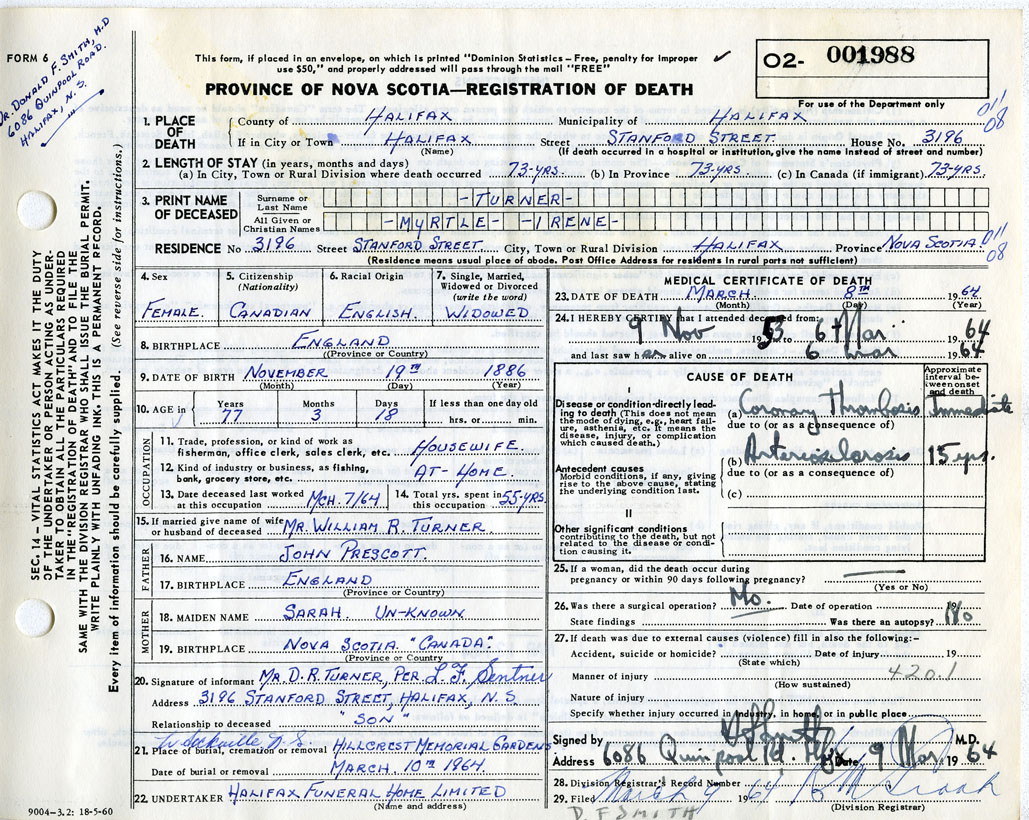 FORM 6
DR. DONALD F. SMITH, M.D
6086 QUINPOOL ROAD.
HALIFAX, N.S.
This form, if placed in an envelope, on which is printed "Dominion Statistics—Free, penalty for improper
use $50," and properly addressed will pass through the mail "FREE"
✓
O2- 001988
For use of the Department only
PROVINCE OF NOVA SCOTIA—REGISTRATION OF DEATH
011
08
1. PLACE OF DEATH
County of HALIFAX Municipality of HALIFAX
If in City or Town HALIFAX Street STANFORD STREET. House No. 3196
(Name) (If death occurred in a hospital or institution, give the name instead of street and number)
2. LENGTH OF STAY (in years, months and days)
(a) In City, Town or Rural Division where death occurred 73-YRS. (b) In Province 73-YRS. (c) In Canada (if immigrant) 73-YRS.
3. PRINT NAME OF DECEASED
Surname or Last Name -TURNER-
All Given or Christian Names -MYRTLE- -IRENE-
RESIDENCE No. 3196 Street STANFORD STREET. City, Town or Rural Division HALIFAX Province NOVA SCOTIA
011
08
(Residence means usual place of abode. Post Office Address for residents in rural parts not sufficient)
4. Sex
FEMALE.
5. Citizenship
(Nationality)
CANADIAN
6. Racial Origin
ENGLISH.
7. Single, Married,
Widowed or Divorced
(write the word)
WIDOWED
8. BIRTHPLACE ENGLAND
(Province or Country)
9. DATE OF BIRTH NOVEMBER 19TH 1886
(Month) (Day) (Year)
10. AGE in
Years Months Days If less than one day old
77 3 18 hrs. or min.
OCCUPATION
11. Trade, profession, or kind of work as
fisherman, office clerk, sales clerk, etc. HOUSEWIFE.
12. Kind of industry or business, as fishing,
bank, grocery store, etc. AT-HOME.
13. Date deceased last worked
at this occupation MCH. 7/64
14. Total yrs. spent in
this occupation 55-YRS.
15. If married give name of wife
or husband of deceased MR. WILLIAM R. TURNER.
FATHER
16. NAME JOHN PRESCOTT.
17. BIRTHPLACE ENGLAND
(Province or Country)
MOTHER
18. MAIDEN NAME SARAH. UN-KNOWN
19. BIRTHPLACE NOVA SCOTIA "CANADA".
(Province or Country)
20. Signature of informant MR. D. R. TURNER, PER L. F. Sentner
Address 3196 STANFORD STREET, HALIFAX, N.S.
Relationship to deceased "SON"
21. Place of burial, cremation or removal HILLCREST MEMORIAL GARDENS
Sackville N.S.
Date of burial or removal MARCH. 10TH 1964.
22. UNDERTAKER HALIFAX FUNERAL HOME LIMITED
(Name and address)
MEDICAL CERTIFICATE OF DEATH
23. DATE OF DEATH MARCH 8TH 1964
(Month) (Day) (Year)
24. I HEREBY CERTIFY that I attended deceased from:
9 Nov 1953 to 6 Mar 1964
and last saw her alive on 6 Mar 1964
CAUSE OF DEATH
Approximate
interval be-
tween onset
and death
I
Disease or condition directly lead-
ing to death (This does not mean
the mode of dying, e.g., heart fail-
ure, asthenia, etc. It means the
disease, injury, or complication
which caused death.)
(a) Coronary Thrombosis Immediate
due to (or as a consequence of)
(b) Arteriosclerosis 15 yrs.
due to (or as a consequence of)
(c)
Antecedent causes
Morbid conditions, if any, giving
rise to the above cause, stating
the underlying condition last.
II
Other significant conditions
contributing to the death, but not
related to the disease or condi-
tion causing it.
25. If a woman, did the death occur during
pregnancy or within 90 days following pregnancy?
(Yes or No)
26. Was there a surgical operation? No. Date of operation 19
State findings Was there an autopsy? No
27. If death was due to external causes (violence) fill in also the following:—
Accident, suicide or homicide? Date of injury 19
(State which)
Manner of injury 4201
(How sustained)
Nature of injury
Specify whether injury occurred in industry, in home or in public place
Signed by D F Smith M.D.
Address 6086 Quinpool Rd. Hfx Date 9 Mar 1964
28. Division Registrar's Record Number
29. Filed March 9 1964
(Division Registrar)
D. F SMITH
SEC. 14 – VITAL STATISTICS ACT MAKES IT THE DUTY
OF THE UNDERTAKER OR PERSON ACTING AS UNDER-
TAKER TO OBTAIN ALL THE PARTICULARS REQUIRED
IN THE "REGISTRATION OF DEATH" AND TO FILE THE
SAME WITH THE DIVISION REGISTRAR WHO SHALL ISSUE THE BURIAL PERMIT.
WRITE PLAINLY WITH UNFADING INK. THIS IS A PERMANENT RECORD.
Every item of information should be carefully supplied. (See reverse side for instructions.)
9004—3.2: 18-5-60